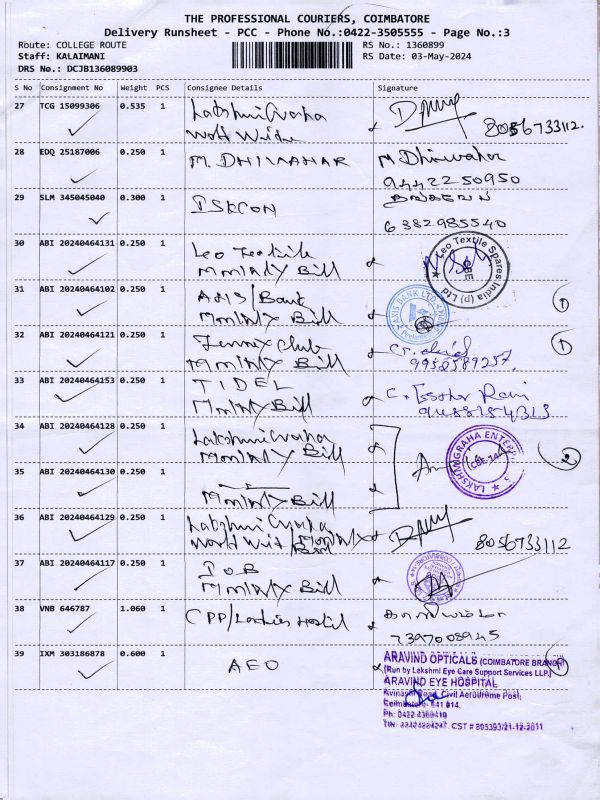 THE PROFESSIONAL COURIERS, COIMBATORE
Delivery Runsheet - PCC - Phone No.:0422-3505555 - Page No.:3
Route: COLLEGE ROUTE
Staff: KALAIMANI
DRS No.: DCJB136089903
RS No.: 1360899
RS Date: 03-May-2024
S No Consignment No Weight PCS Consignee Details Signature
27 TCG 15099306 0.535 1 Lakshmi Graha
World Wide
8056733112.
28 EDQ 25187006 0.250 1 M. DHINAHAR M Dhinahar
9442250950
29 SLM 345045040 0.300 1 ISKCON
6382985540
30 ABI 20240464131 0.250 1 Leo Textile
Monthly Bill
Leo Textile Spares India (p) Ltd
CBE
31 ABI 20240464102 0.250 1 AXIS/Bank
Monthly Bill
AXIS BANK LTD
1
32 ABI 20240464121 0.250 1 Club
Monthly Bill
1
33 ABI 20240464153 0.250 1 TIDEL
Monthly Bill
34 ABI 20240464128 0.250 1 Lakshmi Graha
Monthly Bill
LAKSHMIGRAHA ENTER
2
35 ABI 20240464130 0.250 1
Monthly Bill
36 ABI 20240464129 0.250 1 Lakshmi Graha
World Wide/Monthly
Bill
8056733112
37 ABI 20240464117 0.250 1 IOB
Monthly Bill
38 VNB 646787 1.060 1 CPP/Ladies Hostel
7397008945
39 IXM 303186878 0.600 1 AEO
ARAVIND OPTICALS (COIMBATORE BRANCH)
(Run by Lakshmi Eye Care Support Services LLP.)
ARAVIND EYE HOSPITAL
Avinashi Road, Civil Aerodrome Post,
Coimbatore - 641 014.
Ph: 0422 4360410
CST # 805393/21-12-2011